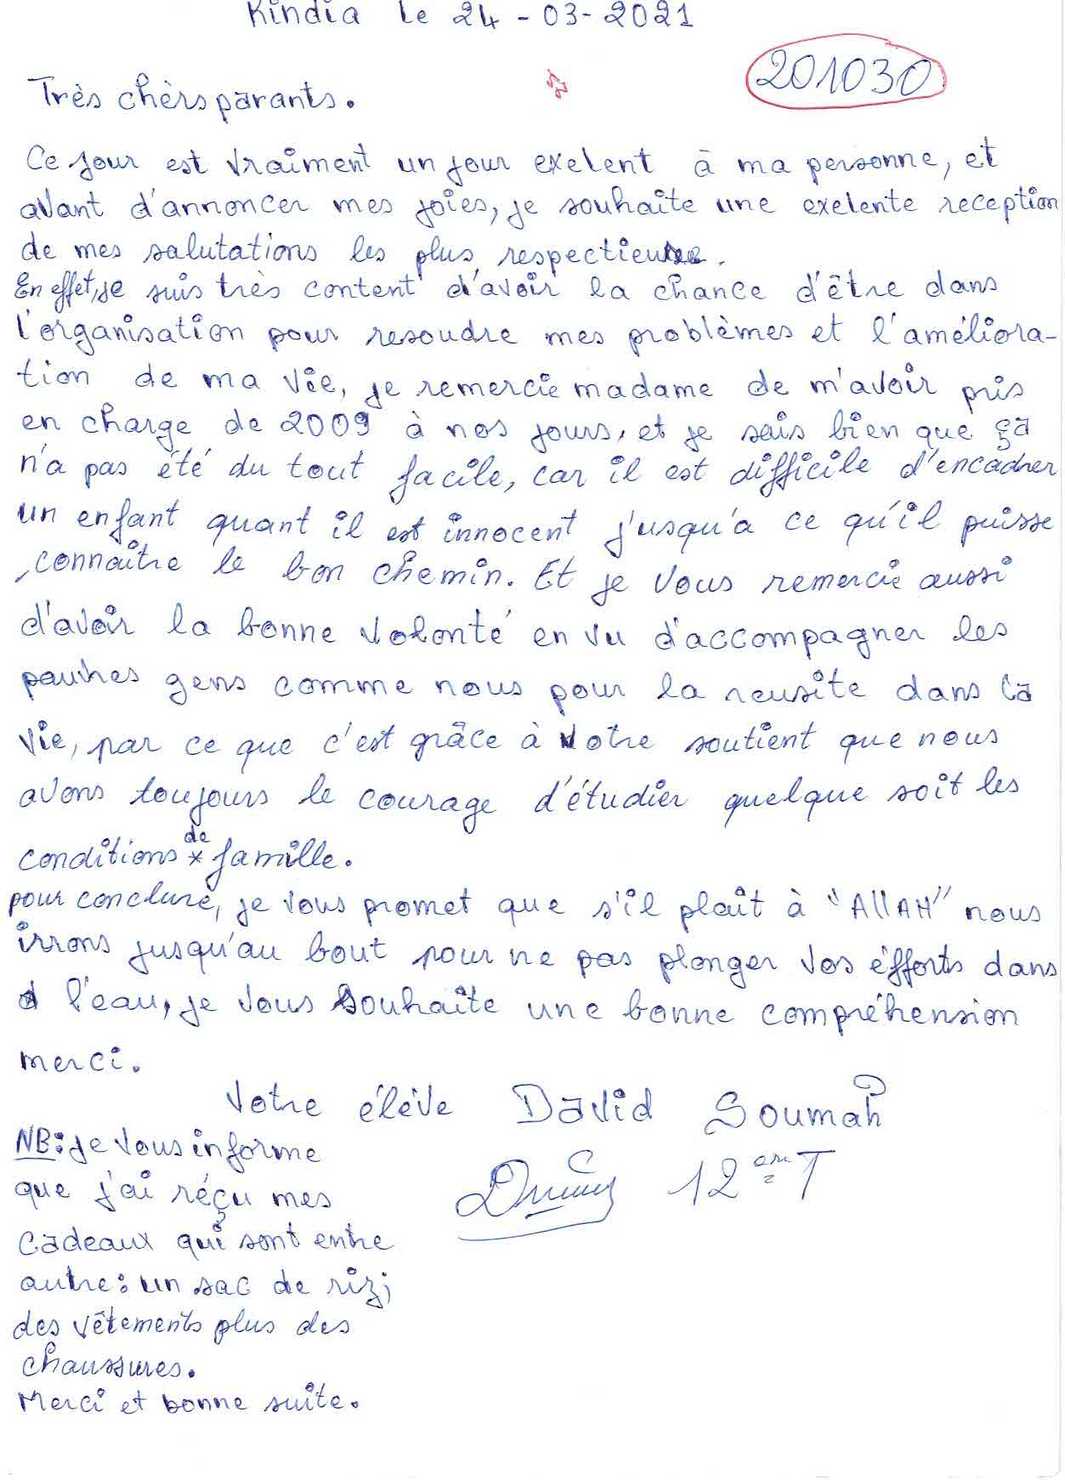 Kindia le 24-03-2021
201030
Très chèrs parants.
Ce jour est vraiment un jour exelent à ma personne, et
avant d'annoncer mes joies, je souhaite une exelente reception
de mes salutations les plus respectieuse.
En effet, je suis très content d'avoir la chance d'être dans
l'organisation pour resoudre mes problèmes et l'améliora-
tion de ma vie, je remercie madame de m'avoir pris
en charge de 2009 à nos jours, et je sais bien que ça
n'a pas été du tout facile, car il est difficile d'encadrer
un enfant quant il est innocent j'usqu'a ce qu'il puisse
connaître le bon chemin. Et je vous remercie aussi
d'avoir la bonne volonté en vu d'accompagner les
pauvres gens comme nous pour la reusite dans la
vie, par ce que c'est grâce à votre soutient que nous
avons toujours le courage d'étudier quelque soit les
conditions de famille.
pour conclure, je vous promet que s'il plaît à "AllAH" nous
irrons jusqu'au bout pour ne pas plonger vos éfforts dans
l'eau, je vous souhaite une bonne compréhension
merci.
Votre éléve David Soumah
12 em T
NB: je vous informe
que j'ai réçu mes
cadeaux qui sont entre
autre: un sac de riz;
des vêtements plus des
chaussures.
Merci et bonne suite.